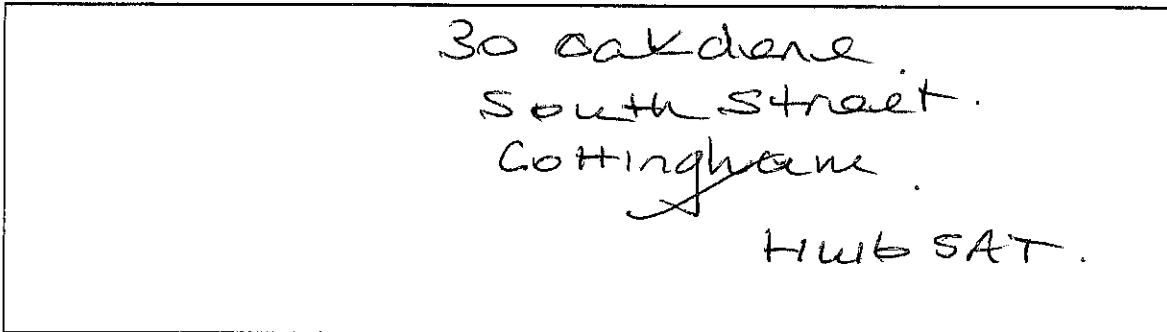 30 oakdene
South Street.
Cottingham.
HU16 5AT.